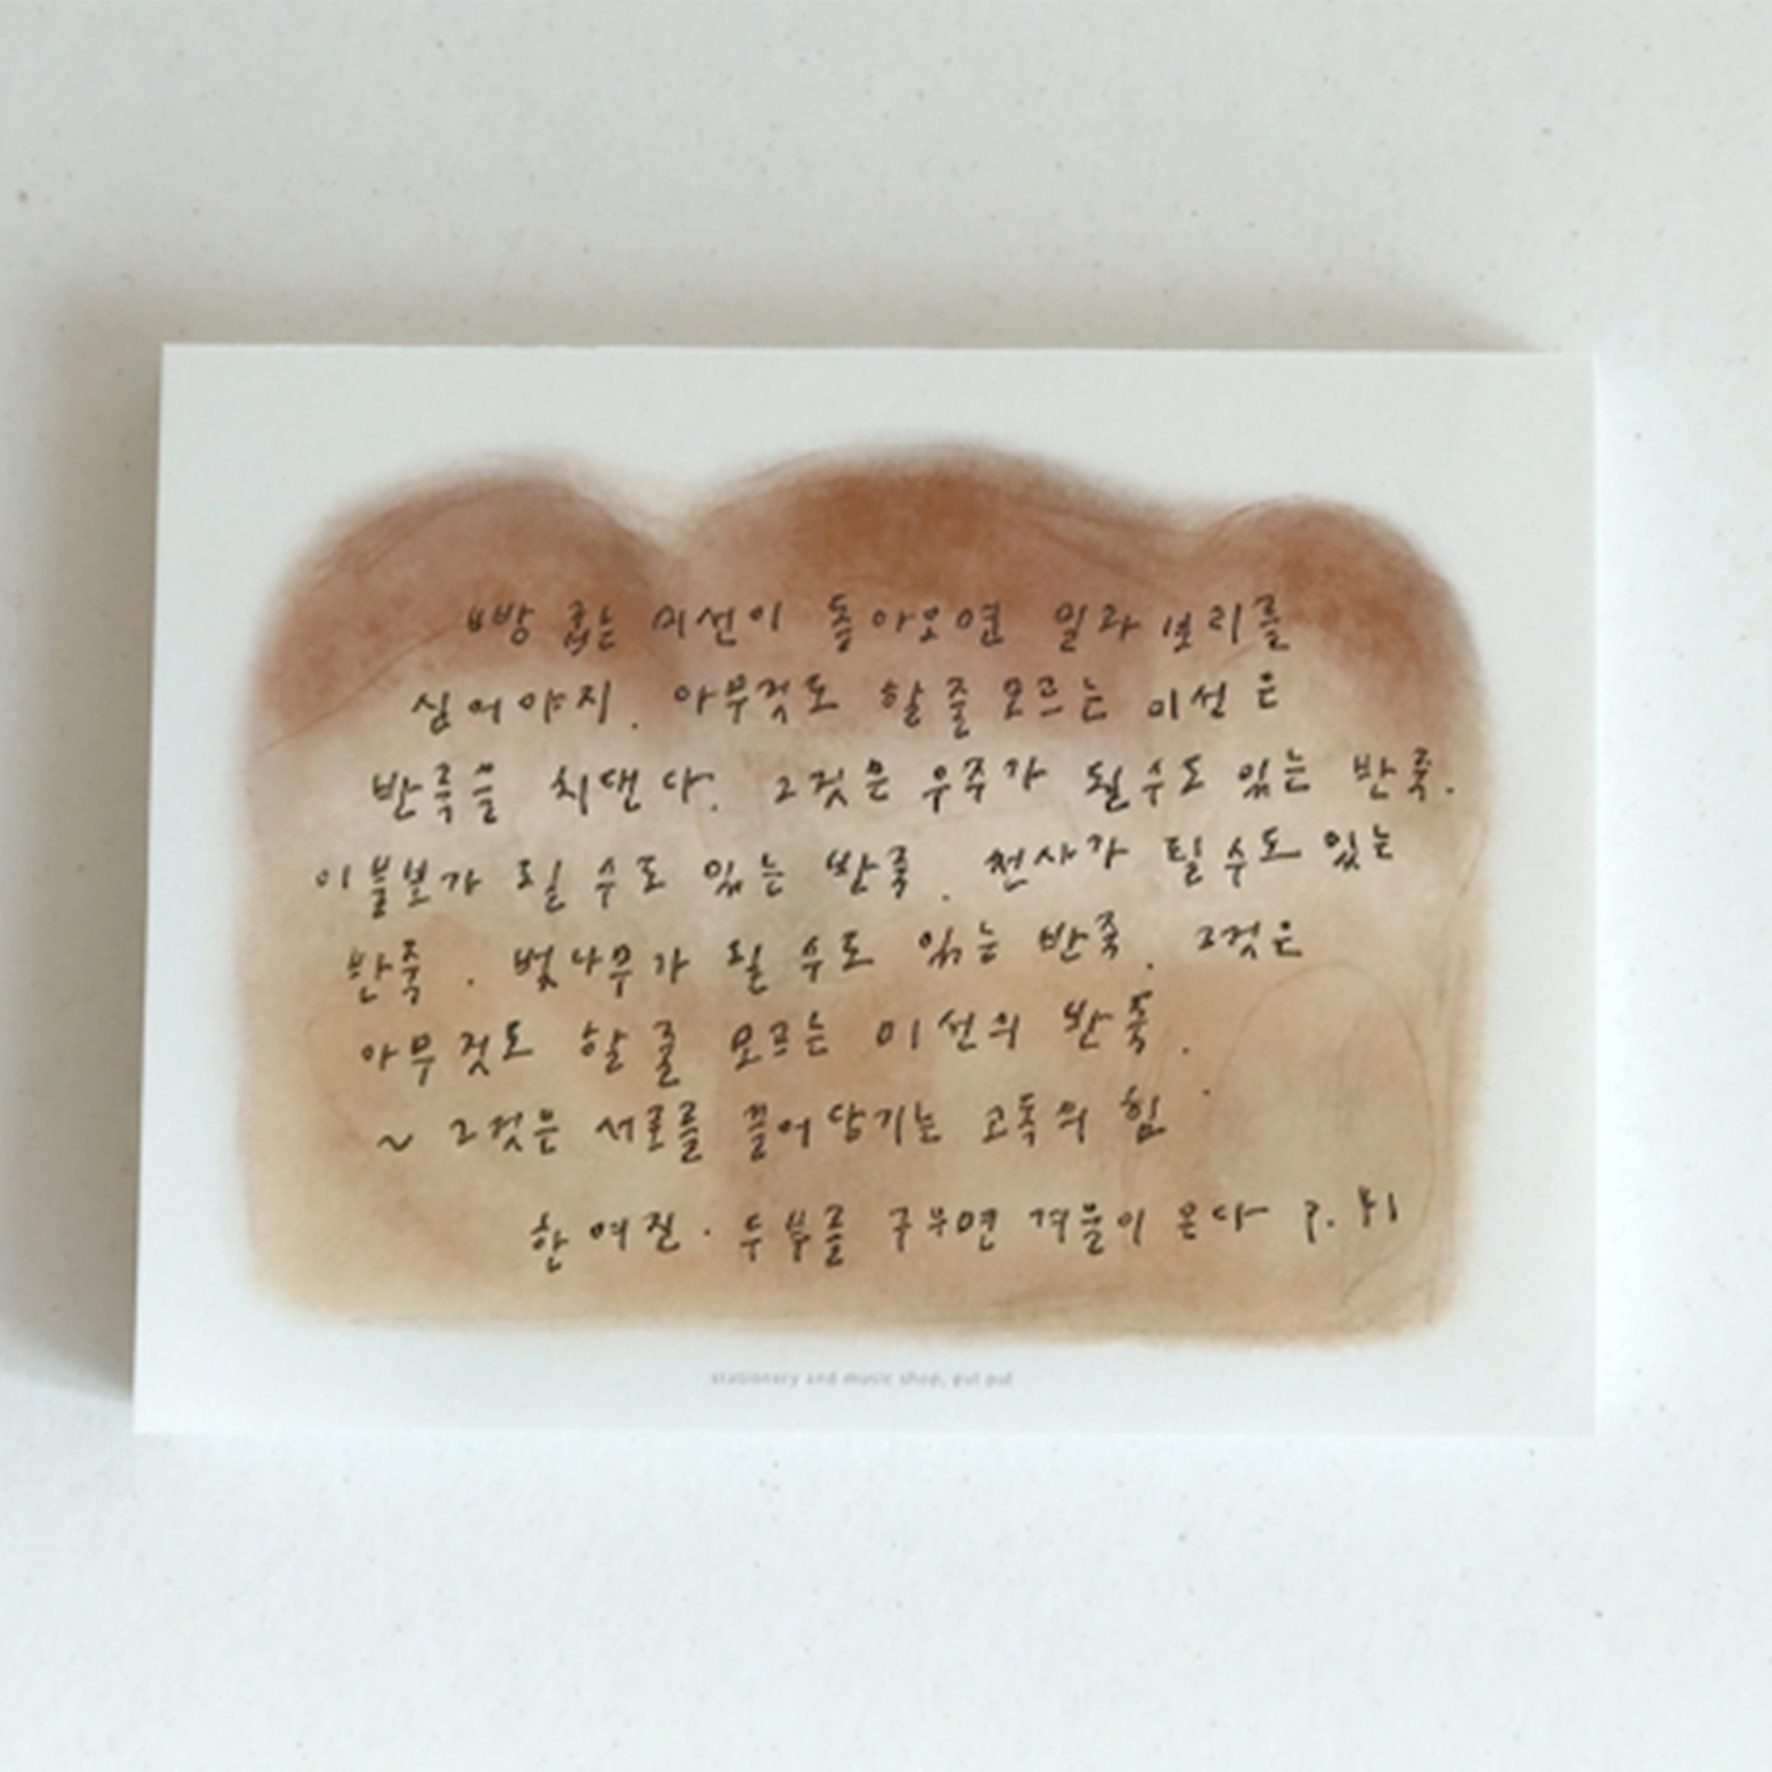 빵 굽는 미선이 돌아오면 밀과 보리를
심어야지. 아무것도 할 줄 모르는 미선은
반죽을 치댄다. 그것은 우주가 될 수도 있는 반죽.
이불보가 될 수도 있는 반죽. 천사가 될 수도 있는
반죽. 벚나무가 될 수도 있는 반죽. 그것은
아무것도 할 줄 모르는 미선의 반죽.
~ 그것은 서로를 끌어 담기는 고독의 힘
한여진 · 두부를 구우면 겨울이 온다 P. 41
stationery and music shop, pul pul